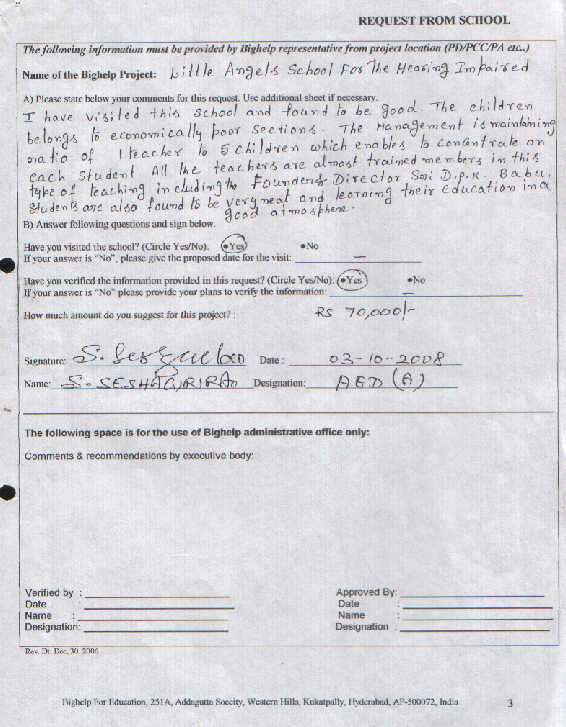 REQUEST FROM SCHOOL
The following information must be provided by Bighelp representative from project location (PD/PCC/PA etc..)
Name of the Bighelp Project: Little Angels School For The Hearing Impaired
A) Please state below your comments for this request. Use additional sheet if necessary.
I have visited this school and found to be good. The children
belongs to economically poor sections. The Management is maintaining
ratio of 1 teacher to 5 children which enables to concentrate on
each student All the teachers are almost trained members in this
type of teaching including the Founder & Director Sri D.P.K. Babu,
students are also found to be very neat and learning their education in a
good atmosphere.
B) Answer following questions and sign below.
Have you visited the school? (Circle Yes/No). •Yes •No
If your answer is "No", please give the proposed date for the visit: —
Have you verified the information provided in this request? (Circle Yes/No): •Yes •No
If your answer is "No" please provide your plans to verify the information:
How much amount do you suggest for this project? : RS 70,000/-
Signature: Date : 03-10-2008
Name: S. SESHAGIRIRAO Designation: AED (A)
The following space is for the use of Bighelp administrative office only:
Comments & recommendations by executive body:
Verified by : Approved By:
Date Date :
Name : Name :
Designation: Designation :
Rev. Dt. Dec, 30, 2006
Bighelp For Education, 251A, Addagutta Soceity, Western Hills, Kukatpally, Hyderabad, AP-500072, India 3